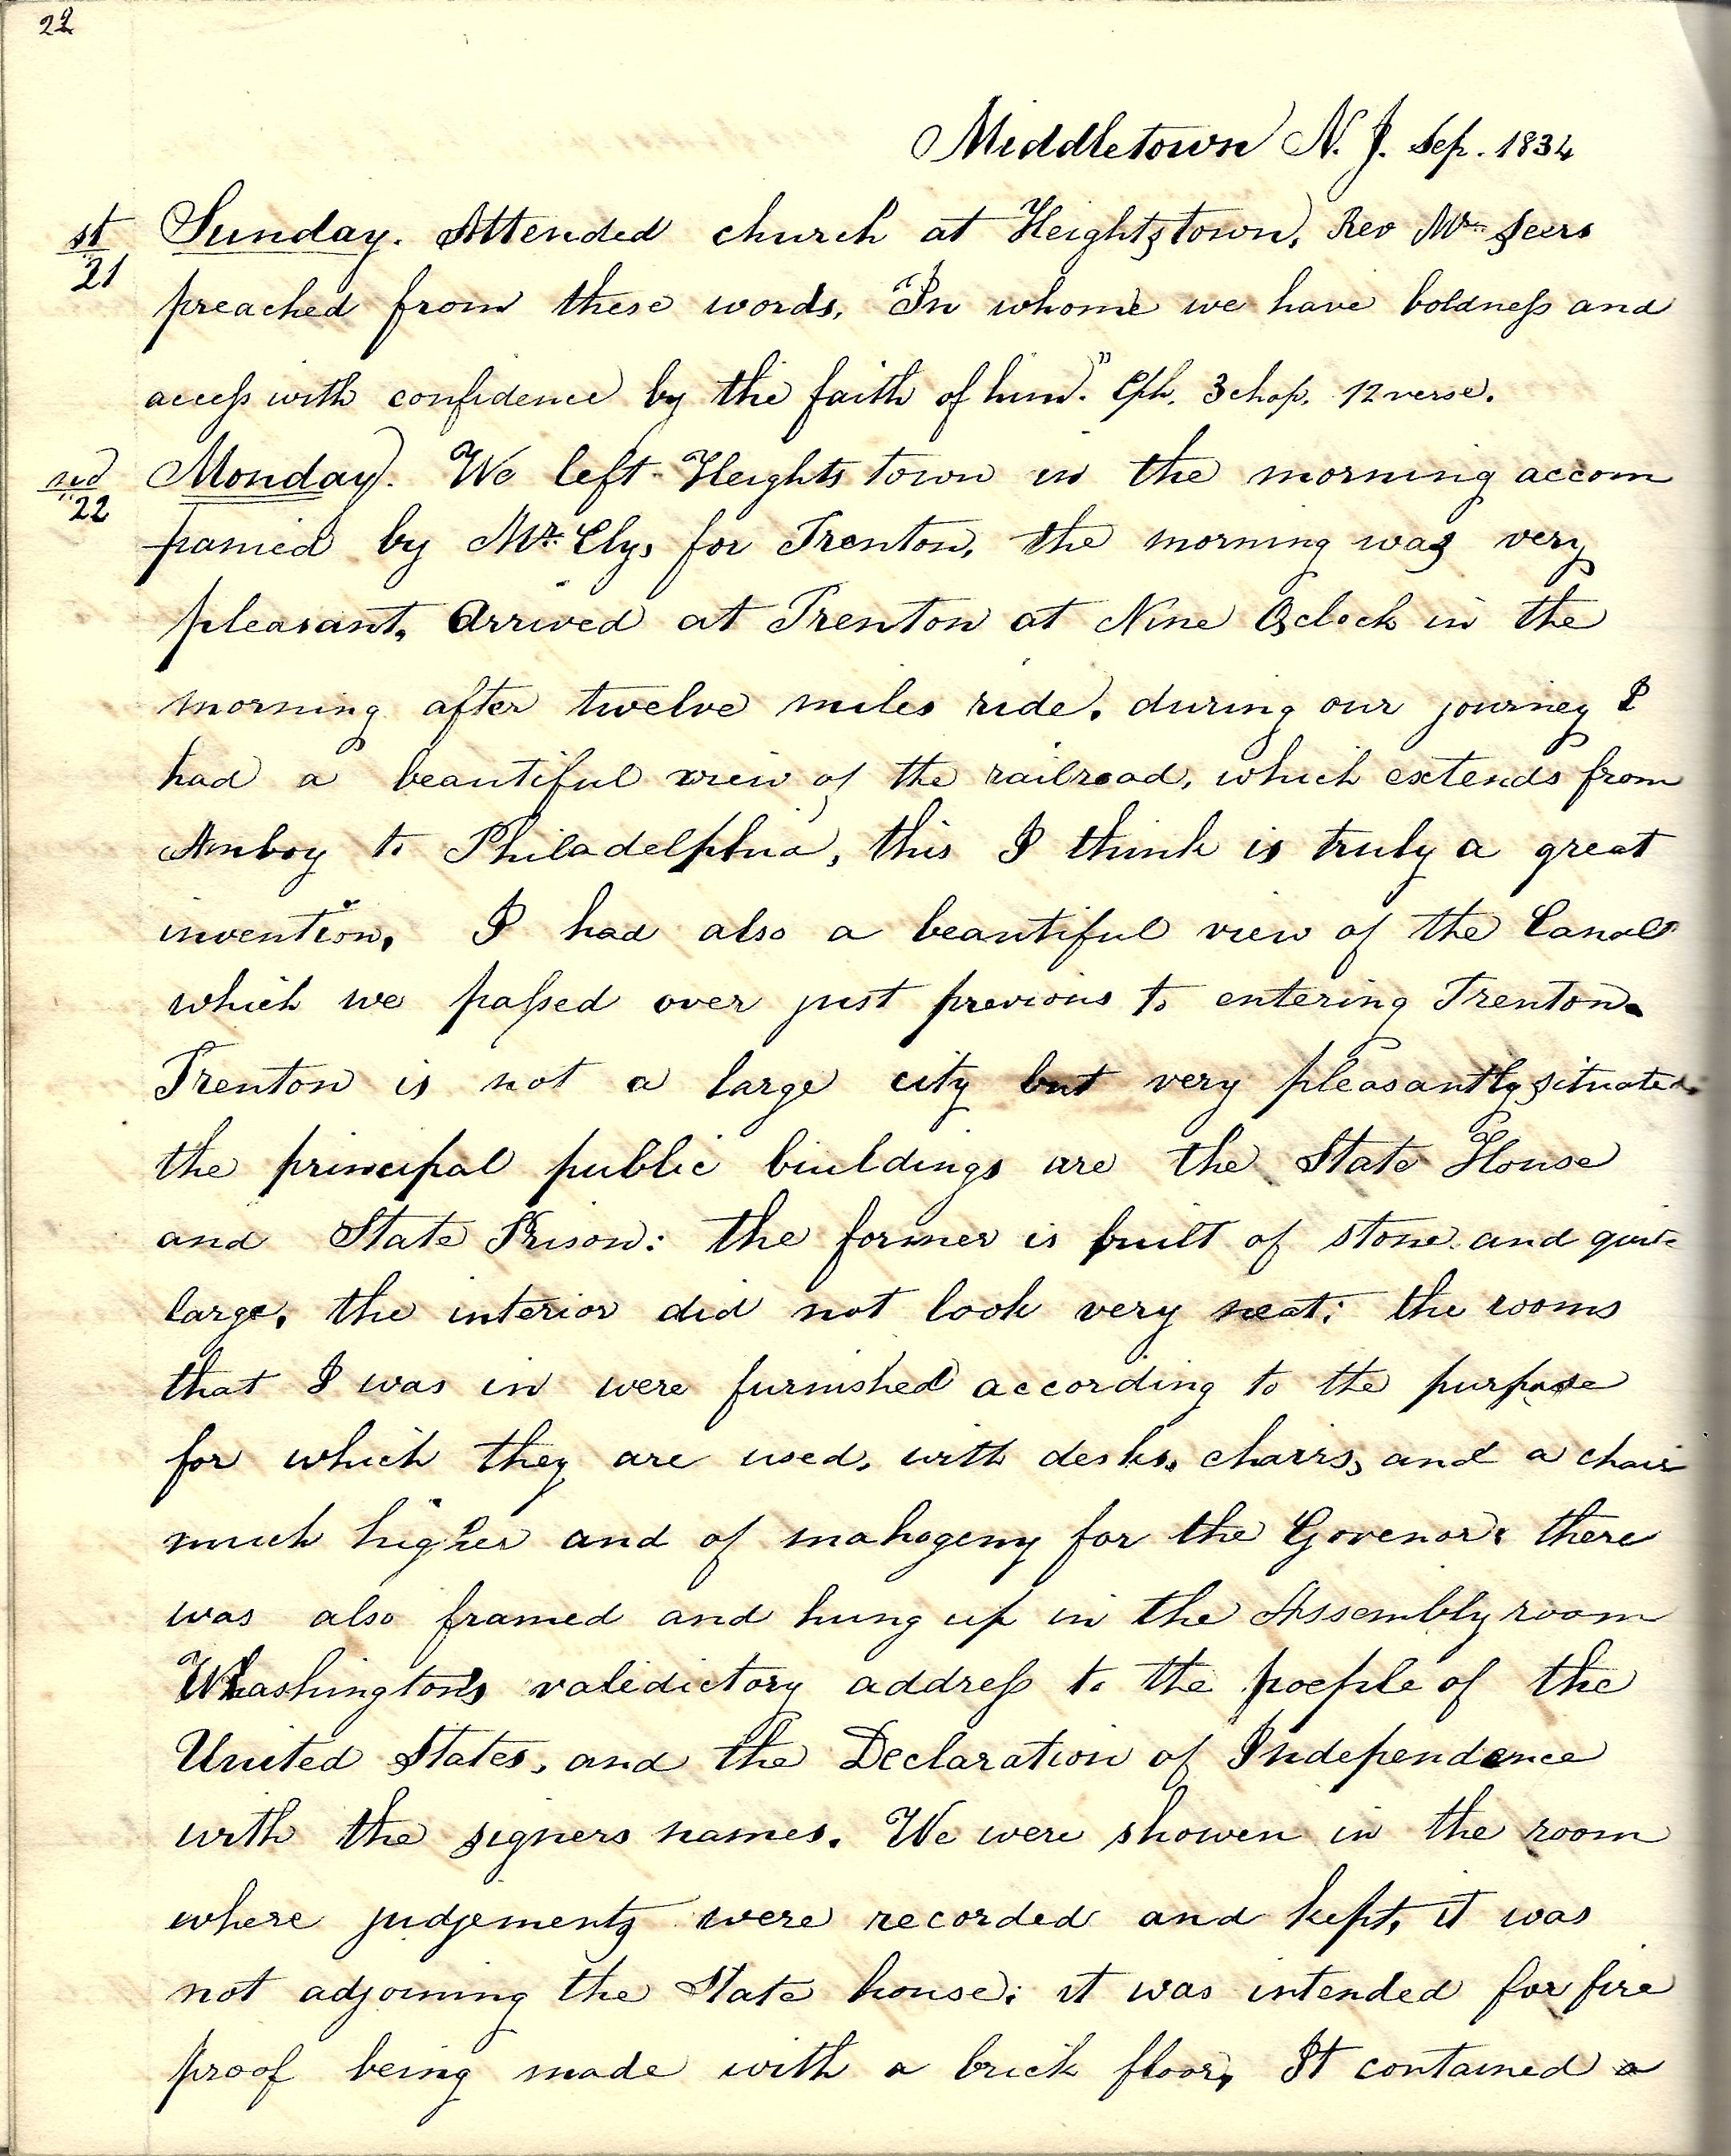 22
Middletown N. J. Sep. 1834
st Sunday. Attended church at Heightstown, Rev Mr. Seers
21 preached from these words, "In whome we have boldness and
access with confidence by the faith of him." Eph. 3 chap. 12 verse.
nd Monday. We left Heights town in the morning accom
22 panied by Mr. Ely, for Trenton, the morning was very
pleasant, Arrived at Trenton at Nine Oclock in the
morning after twelve miles ride, during our journey I
had a beautiful view of the railroad, which extends from
Amboy to Philadelphia, this I think is truly a great
invention, I had also a beautiful view of the Canal
which we passed over just previous to entering Trenton.
Trenton is not a large city but very pleasantly situated,
the principal public buildings are the State House
and State Prison: the former is built of stone and quite
large, the interior did not look very neat; the rooms
that I was in were furnished according to the purpose
for which they are used, with desks, chairs, and a chair
much higher and of mahogeny for the Govenor; there
was also framed and hung up in the Assembly room
Whashingtons valedictory address to the poeple of the
United States, and the Declaration of Independence
with the signers names. We were showen in the room
where judgements were recorded and kept, it was
not adjoining the State house; it was intended for fire
proof being made with a brick floor, It contained a